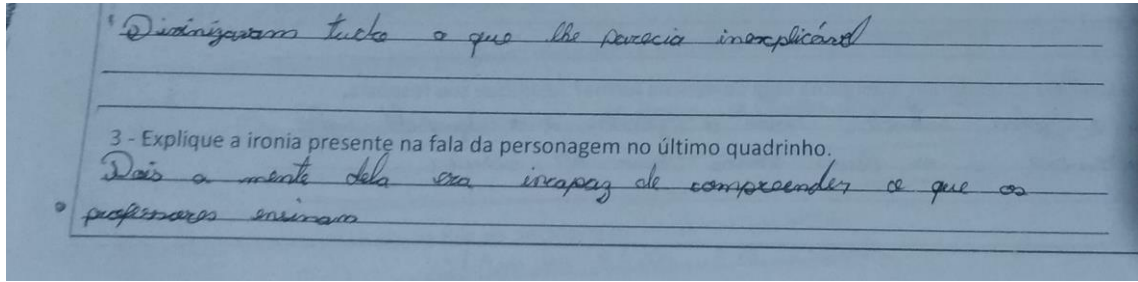 Divinizavam tudo o que lhe parecia inexplicável
3 - Explique a ironia presente na fala da personagem no último quadrinho.
Pois a mente dela era incapaz de compreender o que os
professores ensinam